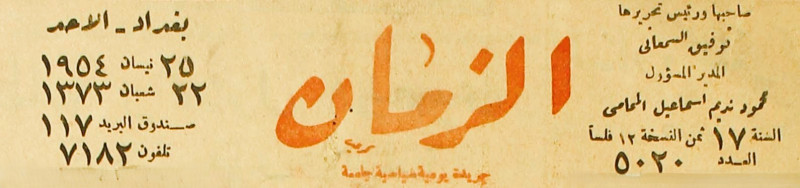 صاحبها ورئيس تحريرها
توفيق السمعاني
المدير المسؤول
محمود نديم اسماعيل المحامي
السنة ١٧ ثمن النسخة ١٢ فلساً
العدد ٥٠٢٠
الزمان
جريدة يومية سياسية جامعة
بغداد - الاحد
٢٥ نيسان ١٩٥٤
٢٢ شعبان ١٣٧٣
صندوق البريد ١١٧
تلفون ٧١٨٢